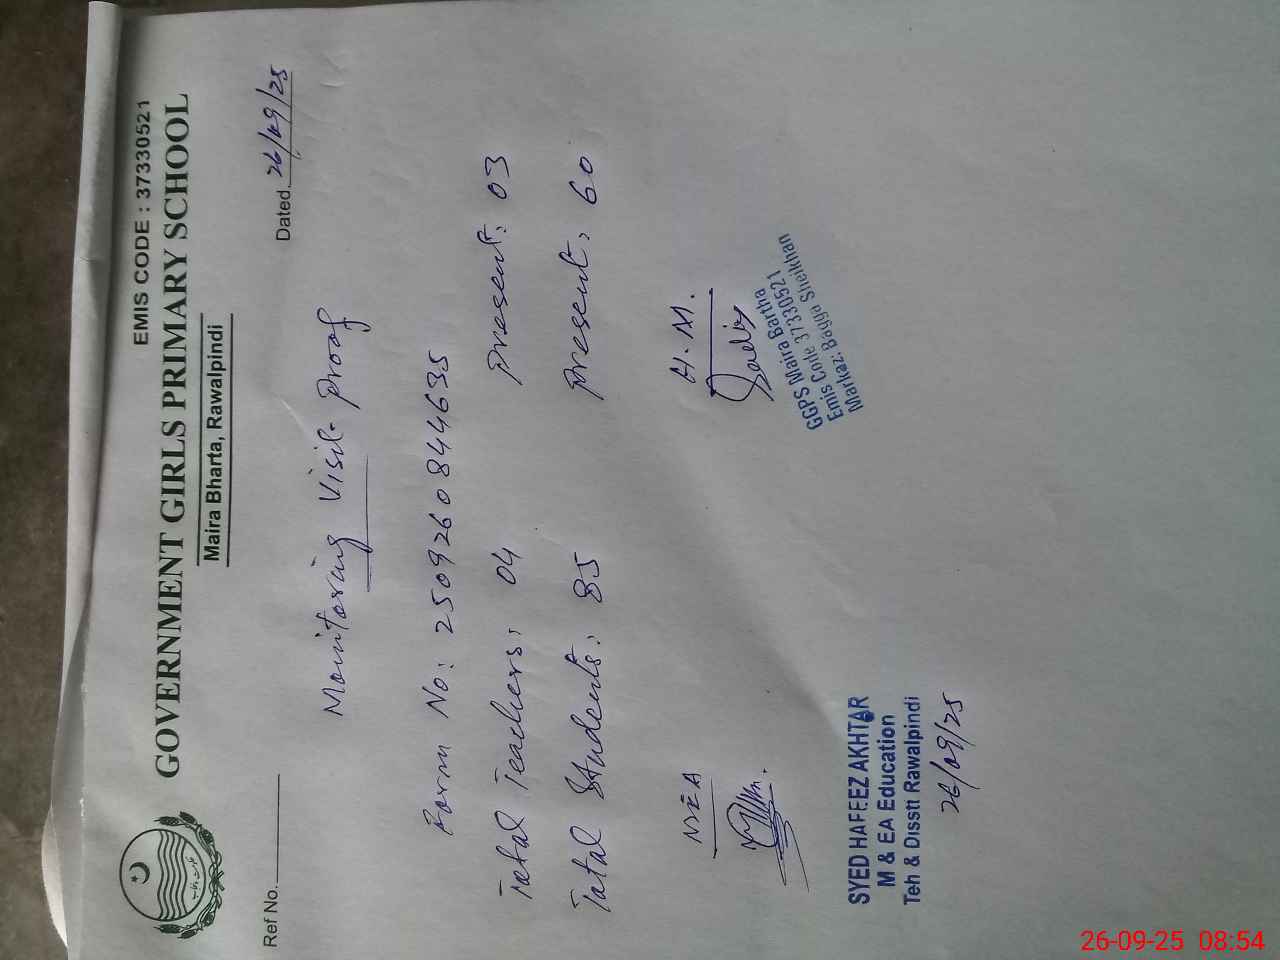 EMIS CODE : 37330521
GOVERNMENT GIRLS PRIMARY SCHOOL
Maira Bharta, Rawalpindi
Ref No.
Dated. 26/09/25
Monitoring Visit Proof
Form No: 250926084 4635
Total Teachers: 04 Present: 03
Total Students: 85 Present: 60
MEA
H.M.
Sadia
GGPS Maira Bartha
Emis Code 37330521
Markaz: Bagga Sheikhan
SYED HAFEEZ AKHTAR
M & EA Education
Teh & Disstt Rawalpindi
26/09/25
26-09-25 08:54